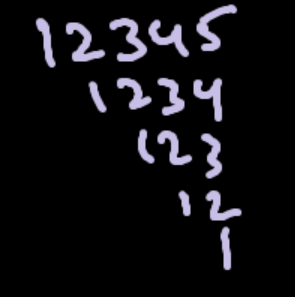 12345
1234
123
12
1